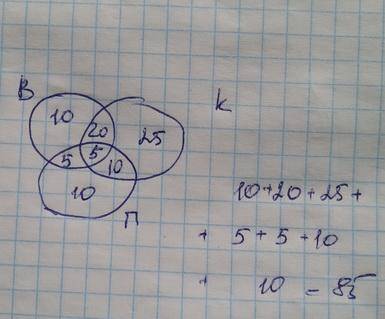 В К
10 20 25
5 5 10
10
П
10+20+25+
+ 5+5+10
+ 10 = 85